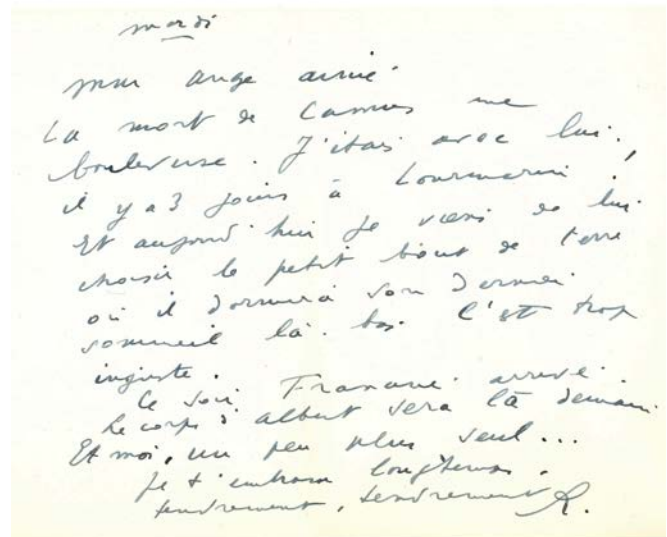 mardi
mon ange aimé
La mort de Camus me
bouleverse. J'étais avec lui,
il y a 3 jours à Lourmarin.
Et aujourd'hui je viens de lui
choisir le petit bout de terre
où il dormira son dernier
sommeil là-bas. C'est trop
injuste.
Ce soir Francine arrive.
Le corps d'Albert sera là demain.
Et moi, un peu plus seul...
Je t'embrasse longtemps.
tendrement, tendrement R.